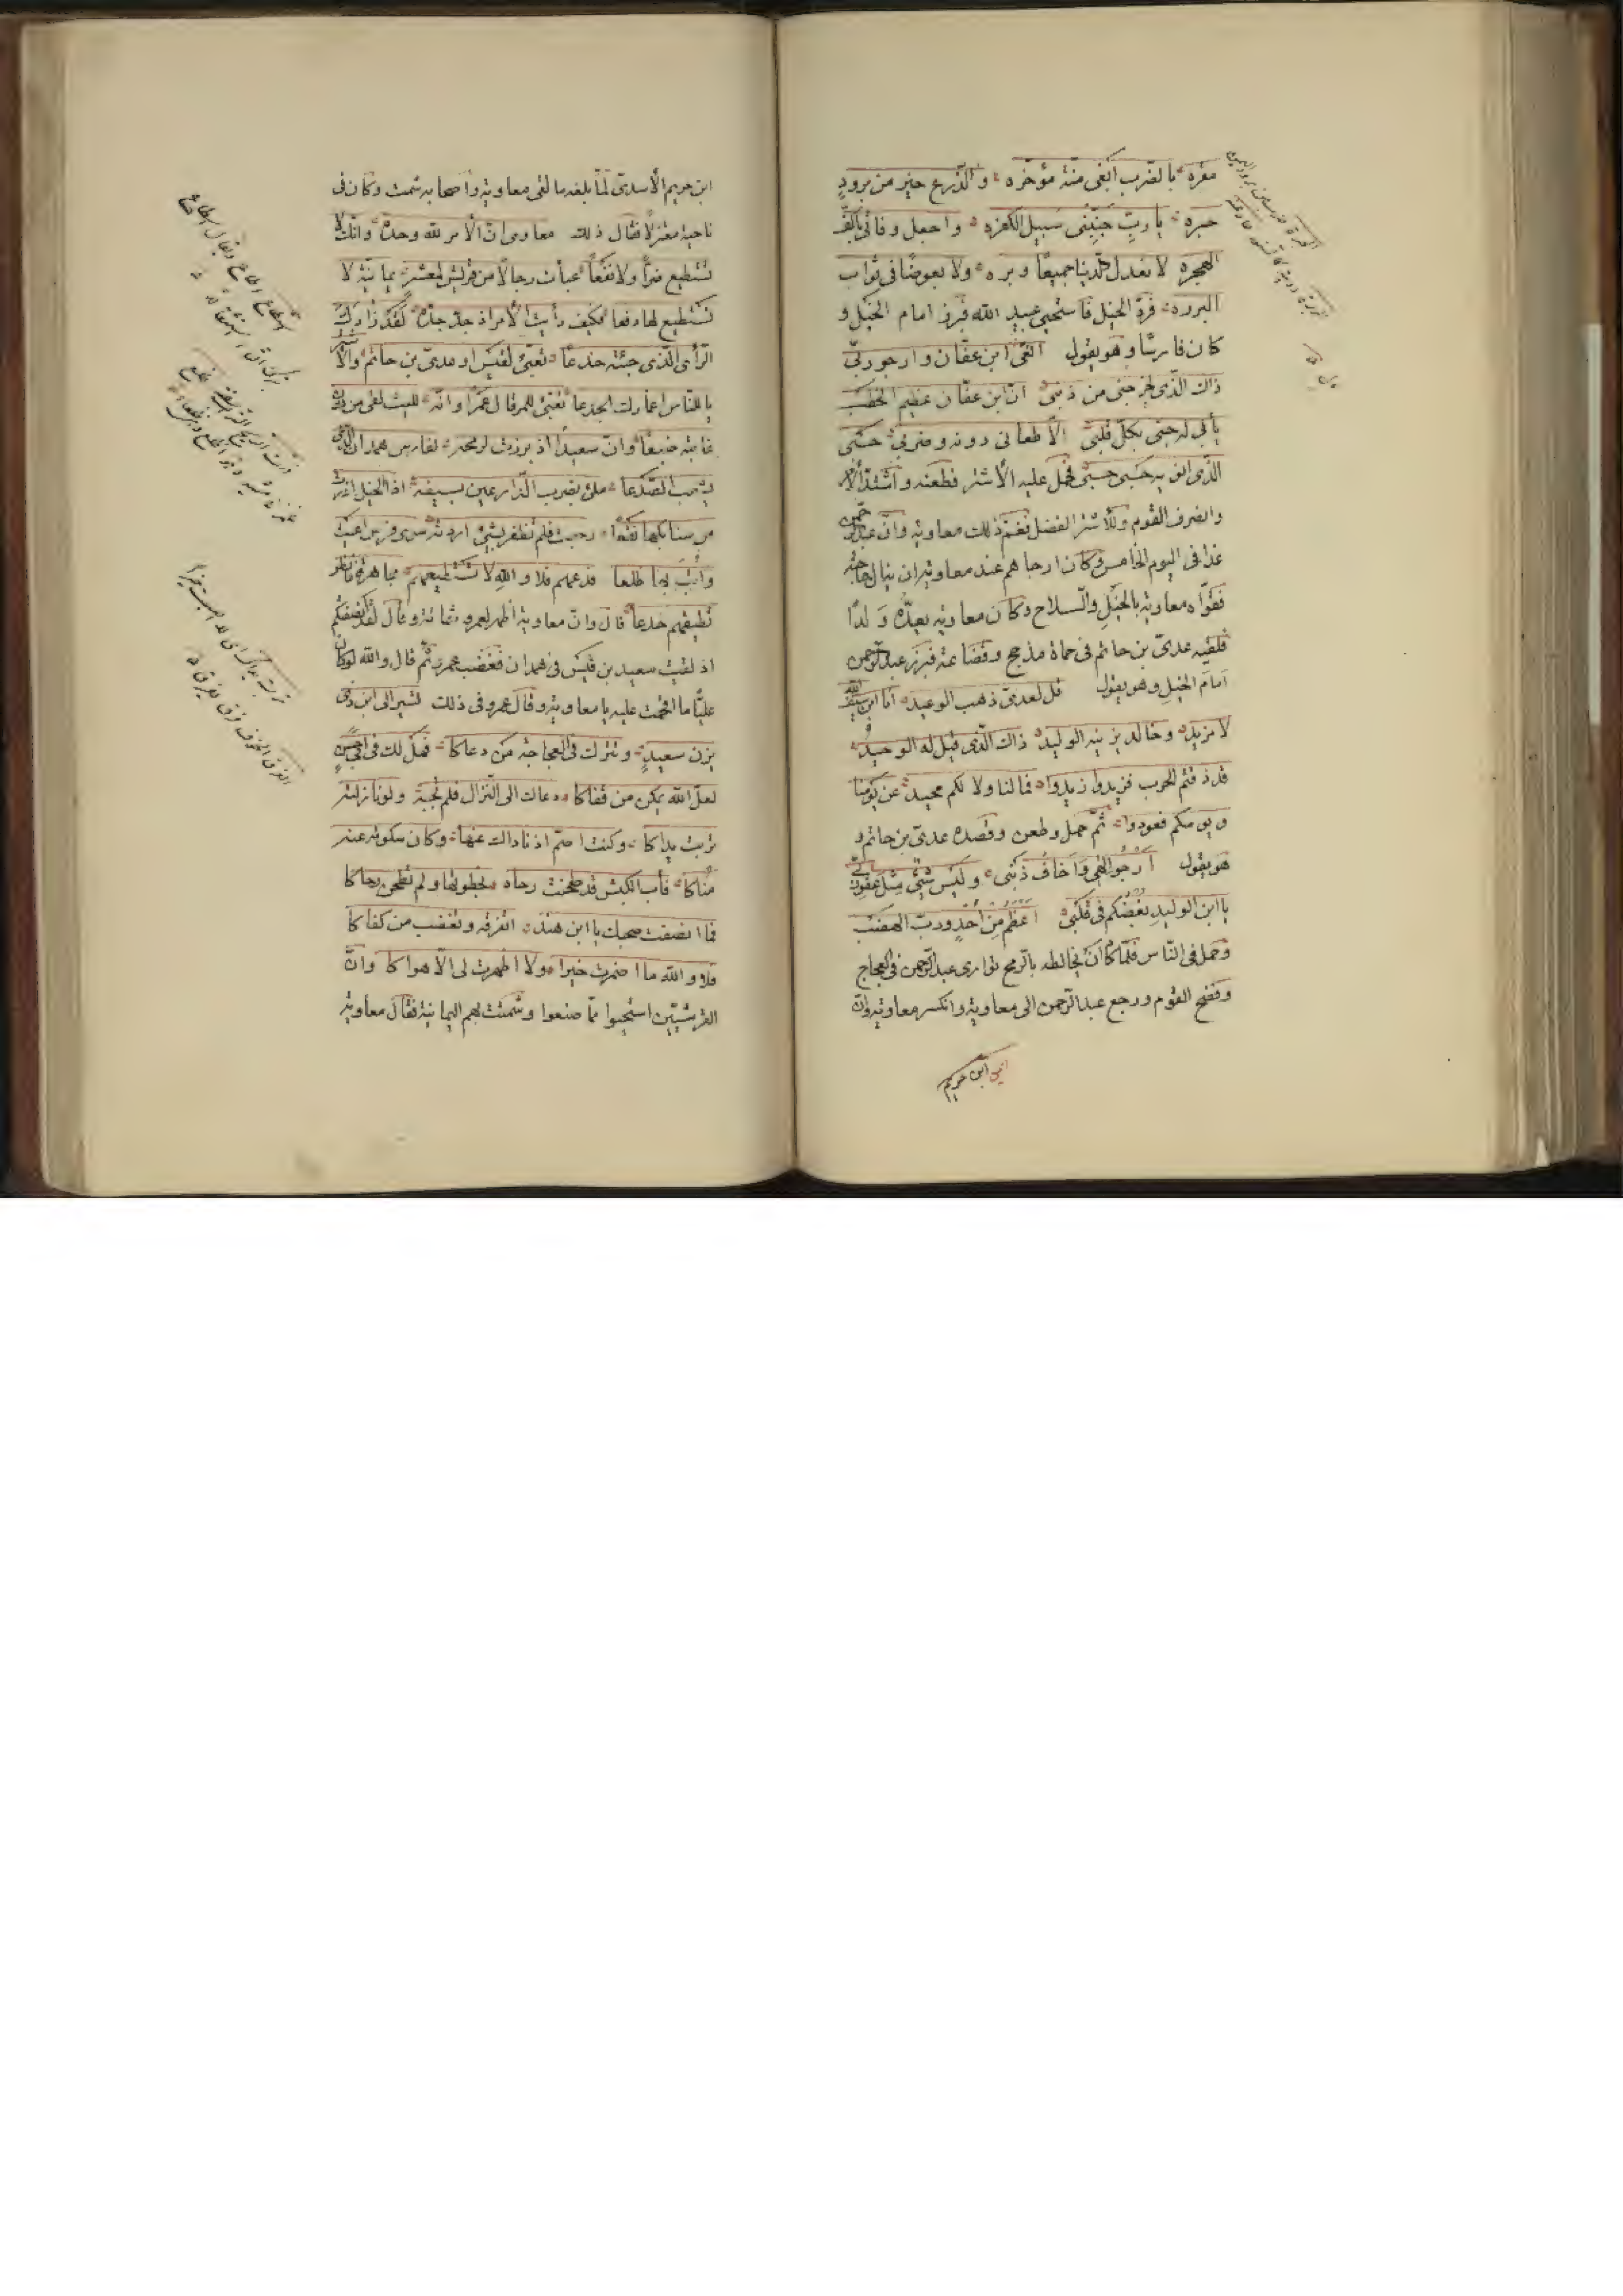 مغره بالضرب ابغى منّة مؤخره والدّرع خير من برود
حبره يا ربّ جنّبني سبيل الكفره واجعل وفاتي بأكفّ
الفجره لا تعدل الدّنيا جميعًا وبره ولا بعوضًا في ثواب
البرره فردّ الخيل فاستحيى عبيد الله فبرز امام الخيل و
كان فارسًا وهو يقول انعى ابن عفّان وارجو ربّي
ذاك الّذي يخرجني من ذنبي انّ ابن عفّان عظيم الخطب
يأبى له حبّي بكلّ قلبي الّا طعاني دونه وضربي حسبي
الّذي انويه حسبي حسبي فحمل عليه الأشتر فطعنه واشتدّ الأمر
وانصرف القوم وللأشتر الفضل فغمّ ذلك معاوية وانّ عبد الرّحمن
غدا في اليوم الخامس وكان ارجاهم عند معاوية ان ينال حاجته
فقوّاه معاوية بالخيل والسّلاح وكان معاوية يعدّه ولدًا
فلقيه عديّ بن حاتم في حماة مذحج وقضاعة فبرز عبد الرّحمن
امام الخيل وهو يقول قل لعديّ ذهب الوعيد انا ابن سيف الله
لا مزيد وخالد يزينه الوليد ذاك الّذي قيل له الوحيد
قد ذقتم الحرب فزيدوا زيدوا فما لنا ولا لكم محيد عن يومنا
ويومكم فعودوا ثمّ حمل وطعن وقصده عديّ بن حاتم و
هو يقول أرجو الهي وأخاف ذنبي وليس شيء مثل عفو ربّي
يا ابن الوليد بغضكم في قلبي اعظم من أحد وربّ الهضب
وحمل في النّاس فلمّا كان يخالطه بالرّمح توارى عبد الرّحمن في العجاج
وفضح القوم ورجع عبد الرّحمن الى معاوية وانكسر معاوية وانّ
ايمن ابن خريم
ابن خريم الأسديّ لمّا بلغه ما لقي معاوية واصحابه شمت وكان في
ناحية معتزلًا فقال ذلك معاوي انّ الأمر لله وحده وانّك لا
تستطيع ضرًّا ولا نفعًا عبأت رجالًا من قريش لمعشر يمانية لا
تستطيع لها دفعا فكيف رأيت الأمر اذ جدّ جدّه لقد زادك
الرّأي الّذي جئته خدعًا تعبّئ لقيس او عديّ بن حاتم والأشتر
يا للنّاس اغمارك الجدعا تعبّئ للمرقال عمرًا وانّه لليث لقى من دون
غايته ضبعًا وانّ سعيدًا اذ برزت لرمحه لفارس همدان الّذي
يشعب الصّدعا ملئ بضرب الدّارعين بسيفه اذا الخيل ابدت
من سنابكها نقعًا رجعت فلم تظفر بشيء اردته سوى فرس اعيت
وأبت بها ظلعا فدعهم فلا والله لا تستطيعهم مجاهرة فانظر
تطيقهم خدعًا قال وانّ معاوية اظهر لعمرو شماتة وقال لقد انصفتكم
اذ لقيت سعيد بن قيس في همدان فغضب عمرو ثمّ قال والله لو كان
عليًّا ما اقحمت عليه يا معاوية وقال عمرو في ذلك تسير الى ابن ذي
يزن سعيد وتترك في العجاجة من دعاكا فهل لك في ابي حسن
لعلّ الله يمكن من قفاكا دعاك الى النّزال فلم تجبه ولو نازلته
تربت يداكا وكنت اصمّ اذ ناداك عنها وكان سكوته عنه
مناكا فآب الكبش قد طحنت رحاه بخطوتها ولم تطحن رحاكا
فما انصفت صحبك يا ابن هند اتفرقه وتغضب من كفاكا
فلا والله ما اضمرت خيرا ولا اظهرت لي الّا هواكا وانّ
القرشيّين استحيوا ممّا صنعوا وشمتت بهم اليمانية فقال معاوية